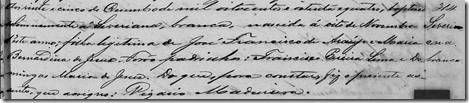 cinco de Dezembro de mil oitocentos e oitenta e quatro, baptizei 214
solemnemente a Severiana, branca, nascida a oito de Novembro Severia
este anno, filha legitima de José Francisco de Araujo e Maria na
Bernardina de Jesus. Foram padrinhos: Francisco Pereira Lima e Do branca
mingas Maria de Jesus. Do que, para constar, fiz o presente as
sento, que assigno: Vigario Madureira.